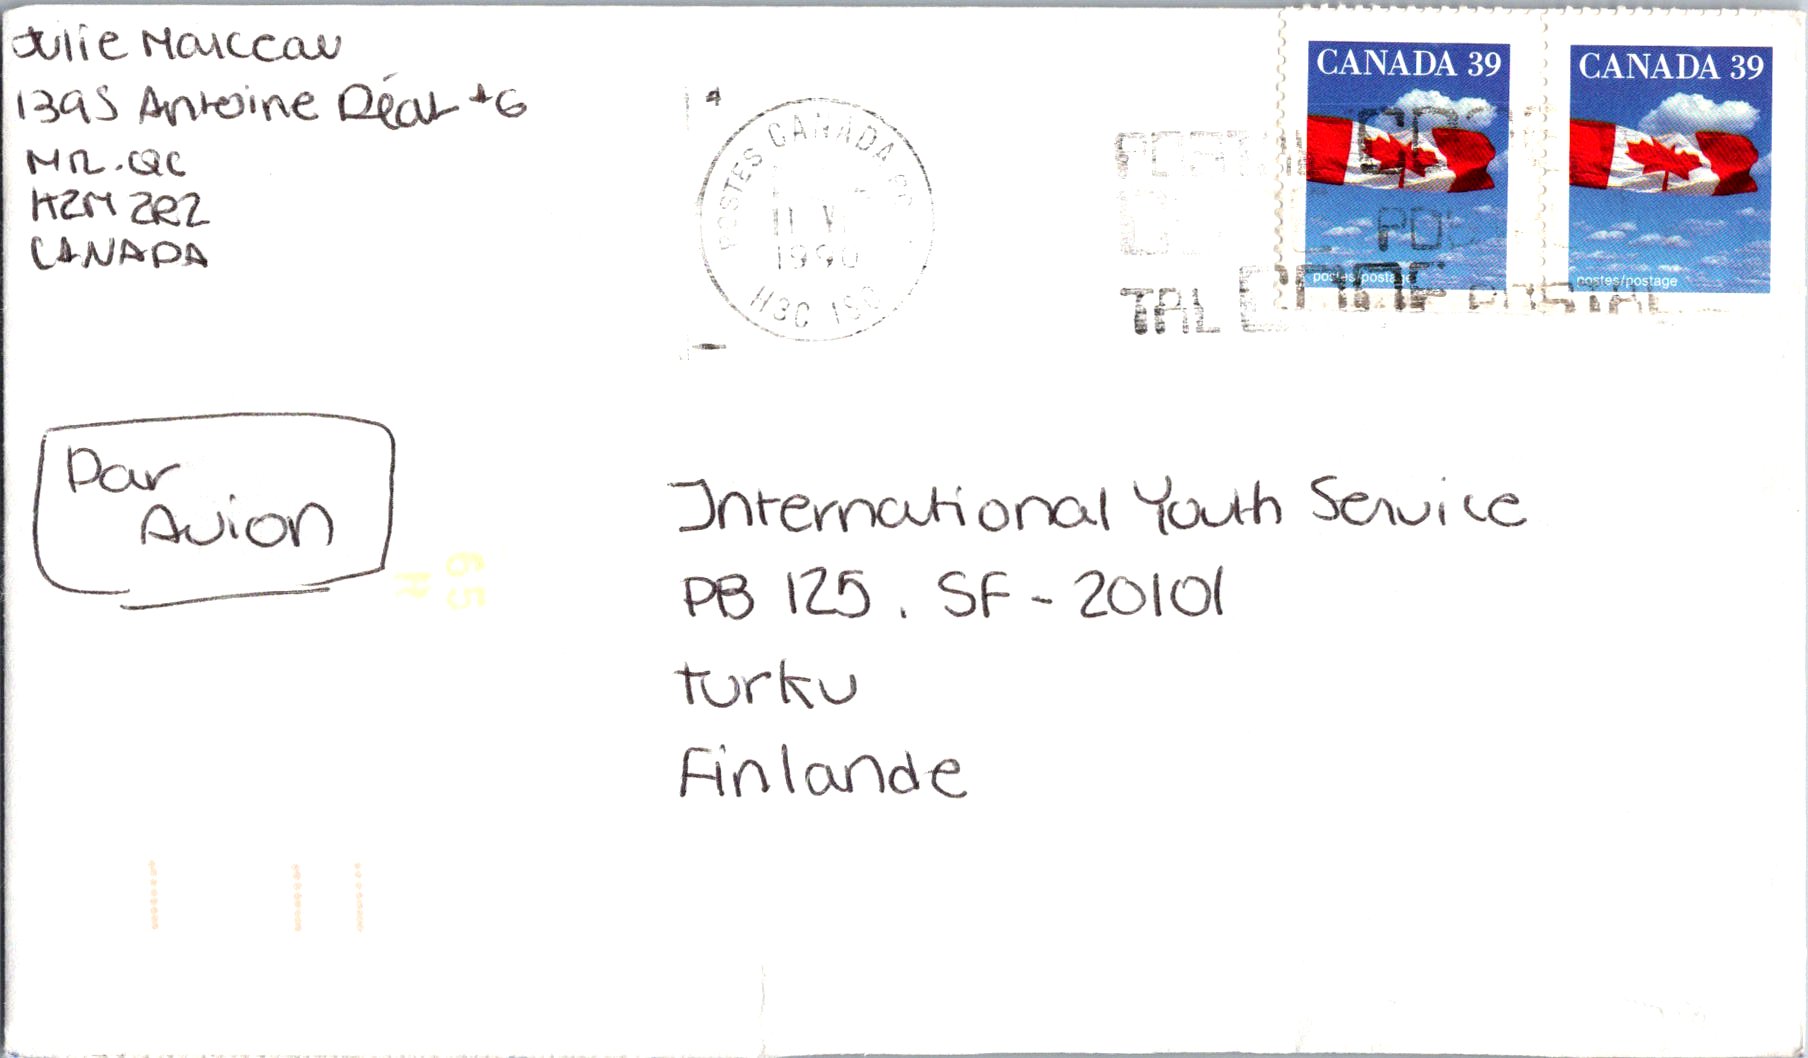 Julie Marceau
1395 Antoine Déat #6
MTL. QC
H2M 2R2
CANADA
POSTES CANADA
11 VI
1990
H3C
CANADA 39
postes/postage
CANADA 39
postes/postage
TAL CODE POSTAL
Par
Avion
International Youth Service
PB 125. SF - 20101
turku
Finlande
65
H